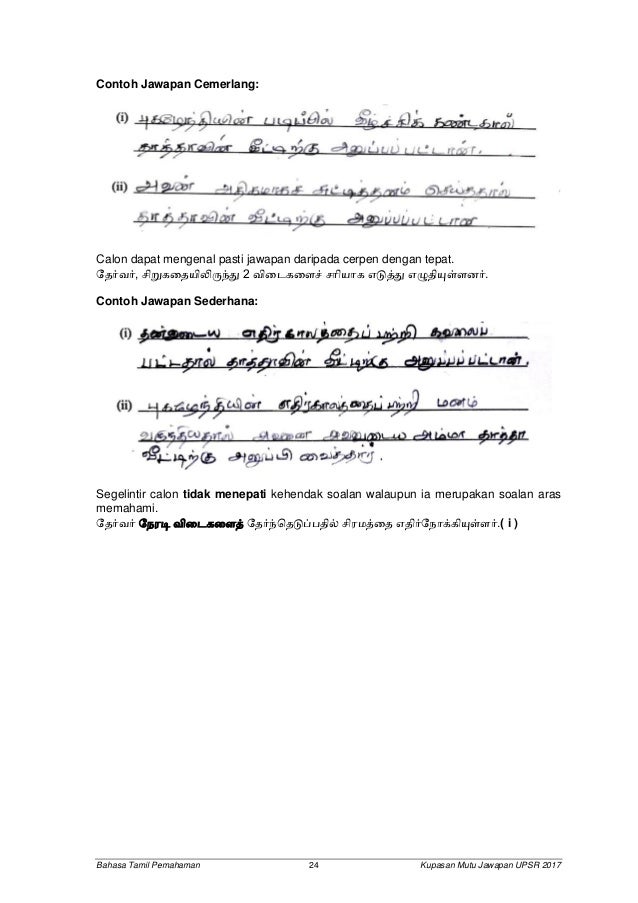 Contoh Jawapan Cemerlang:
(i) புகழேந்தியின் படிப்பில் வீழ்ச்சிக் கண்டதால்
தாத்தாவின் வீட்டிற்கு அனுப்பப்பட்டான்.
(ii) அவன் அதிகமாகச் சுட்டித்தனம் செய்ததால்
தாத்தாவின் வீட்டிற்கு அனுப்பப்பட்டான்
Calon dapat mengenal pasti jawapan daripada cerpen dengan tepat.
தேர்வர், சிறுகதையிலிருந்து 2 விடைகளைச் சரியாக எடுத்து எழுதியுள்ளனர்.
Contoh Jawapan Sederhana:
(i) தன்னுடைய எதிர்காலத்தைப் பற்றி கவலைப்
பட்டதால் தாத்தாவின் வீட்டிற்கு அனுப்பப்பட்டான்.
(ii) புகழேந்தியின் எதிர்காலத்தைப் பற்றி மனம்
வருந்தியதால் அவனை அவனுடைய அம்மா தாத்தா
வீட்டிற்கு அனுப்பி வைத்தார்.
Segelintir calon tidak menepati kehendak soalan walaupun ia merupakan soalan aras
memahami.
தேர்வர் நேரடி விடைகளைத் தேர்ந்தெடுப்பதில் சிரமத்தை எதிர்நோக்கியுள்ளர்.( i )
Bahasa Tamil Pemahaman 24 Kupasan Mutu Jawapan UPSR 2017